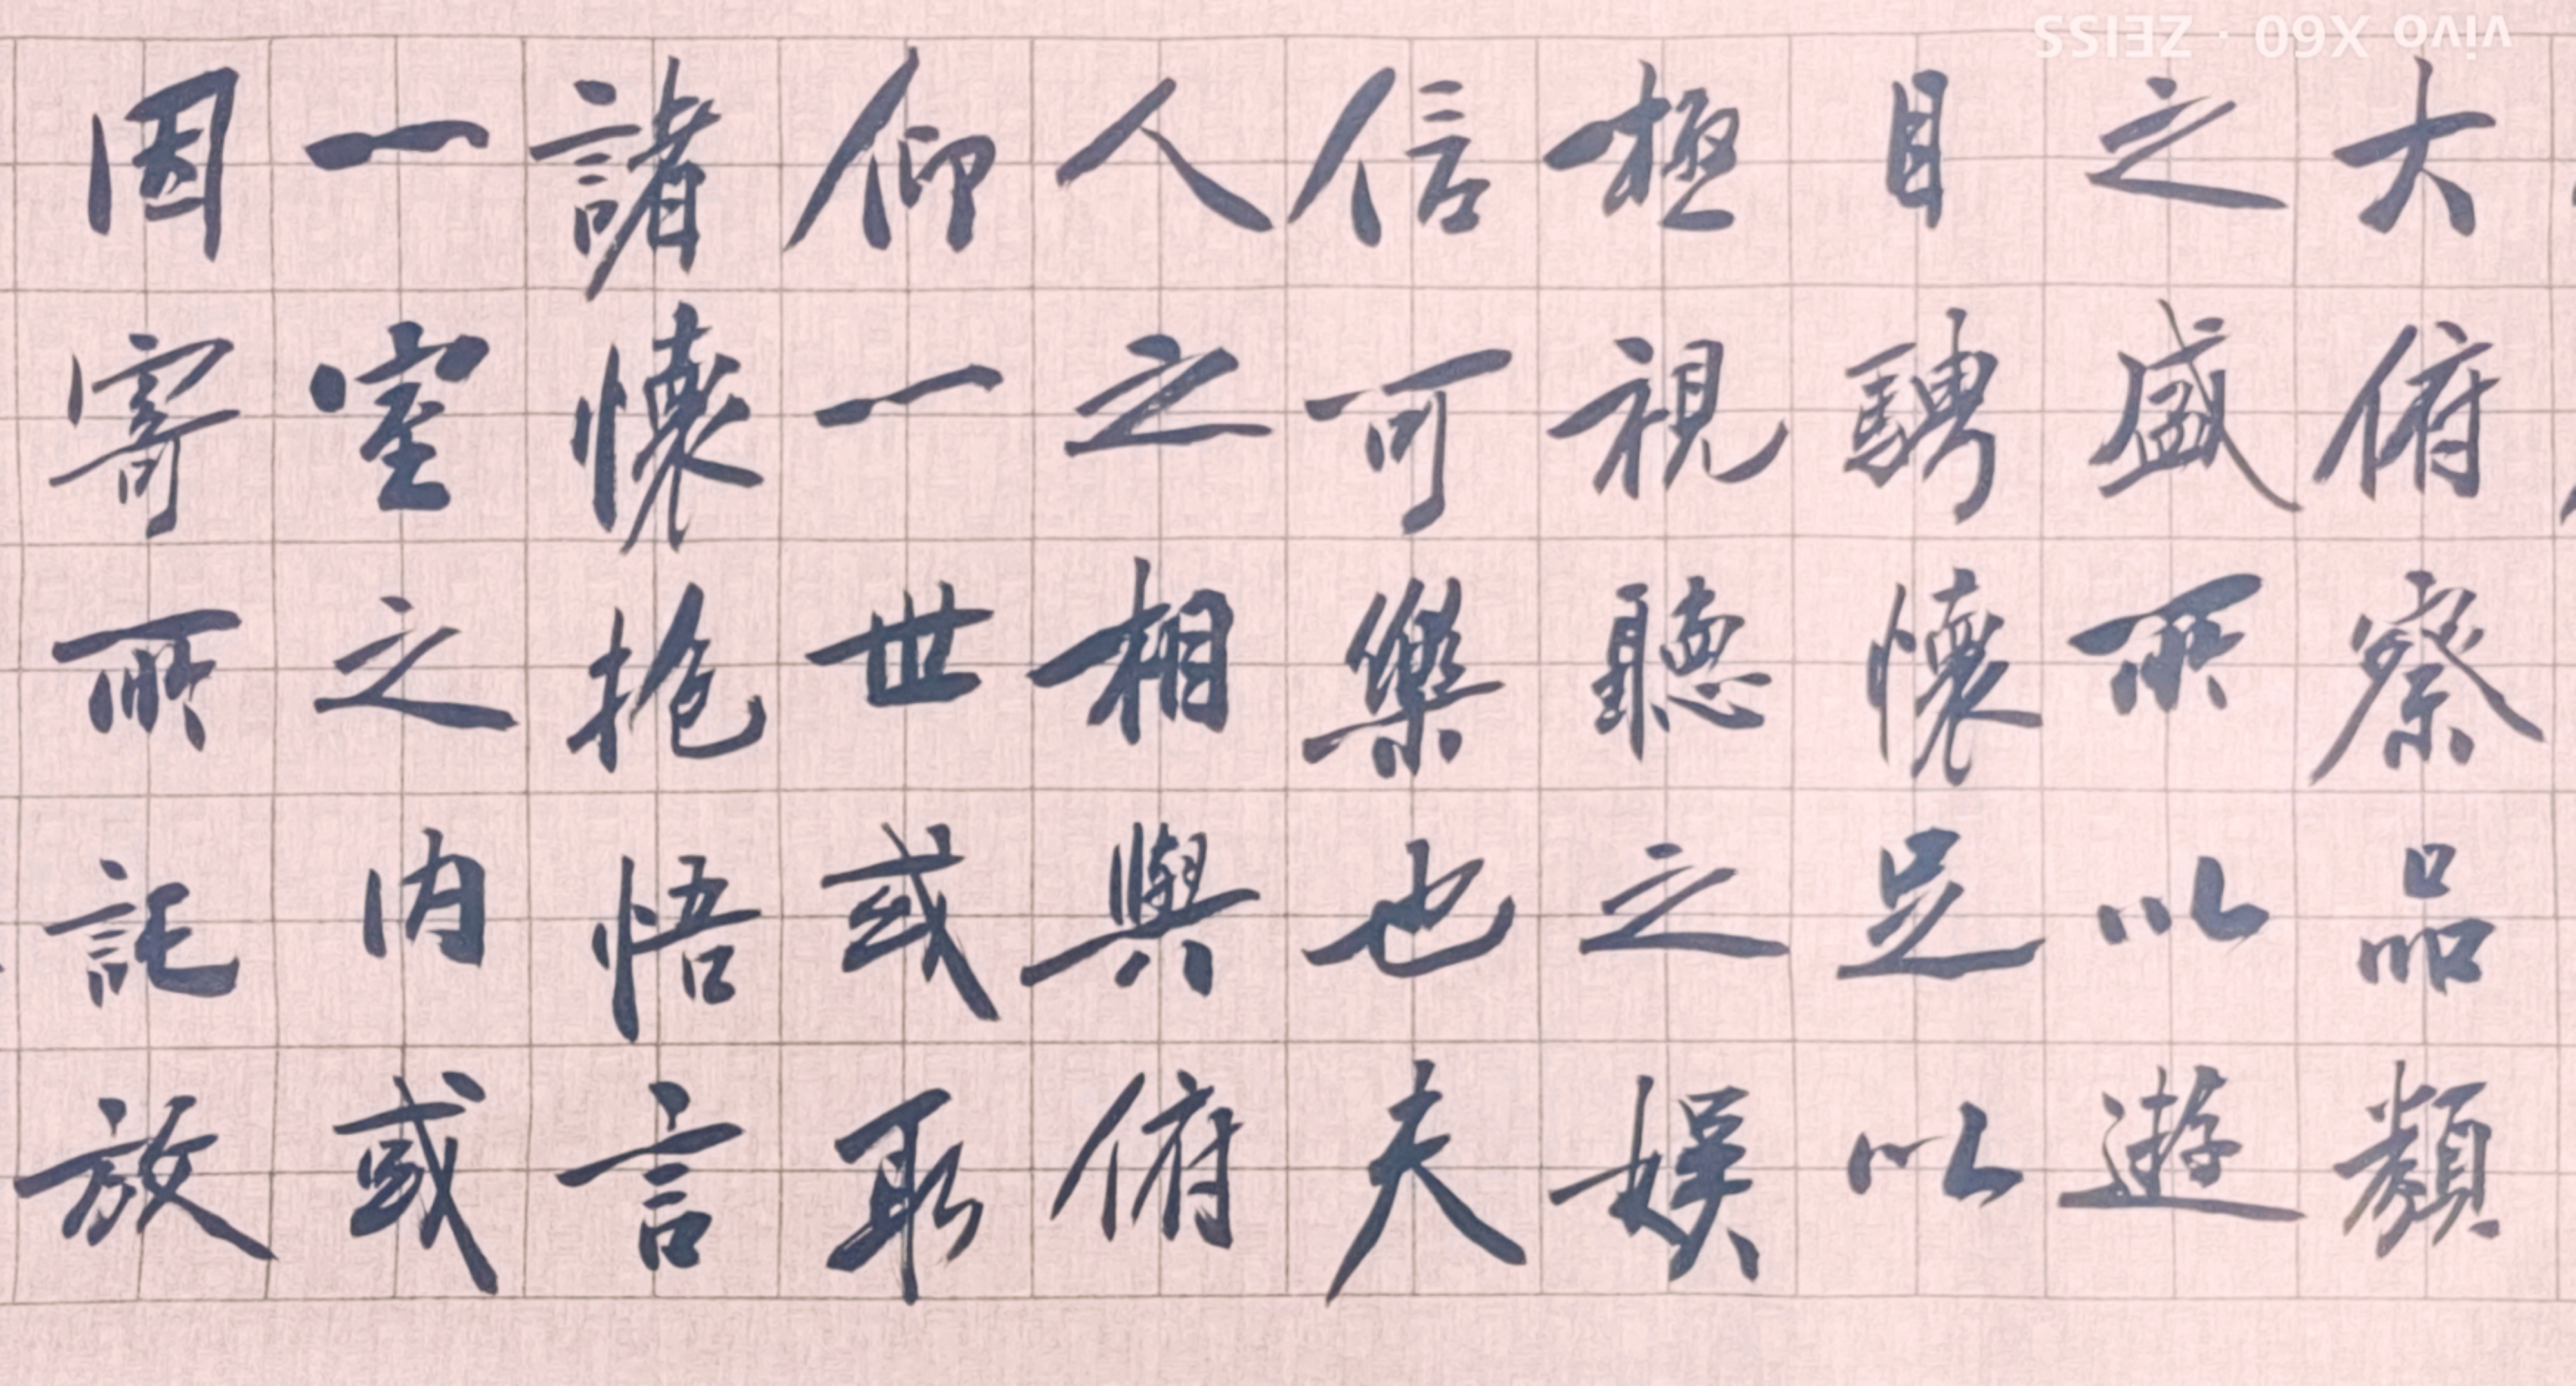 大俯察品類
之盛所以遊
目騁懷足以
極視聽之娛
信可樂也夫
人之相與俯
仰一世或取
諸懷抱悟言
一室之內或
因寄所託放
vivo X60 · ZEISS